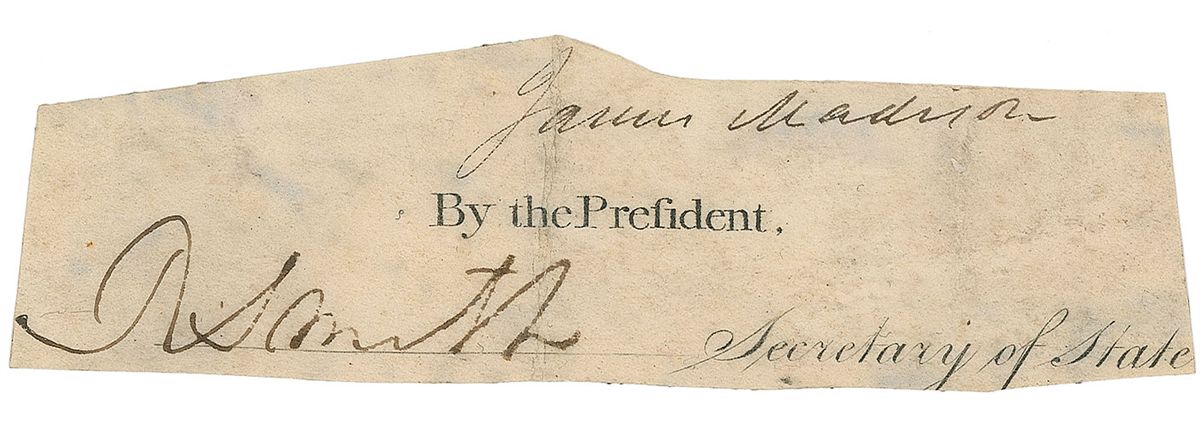 James Madison
By the Preſident,
R Smith
Secretary of State